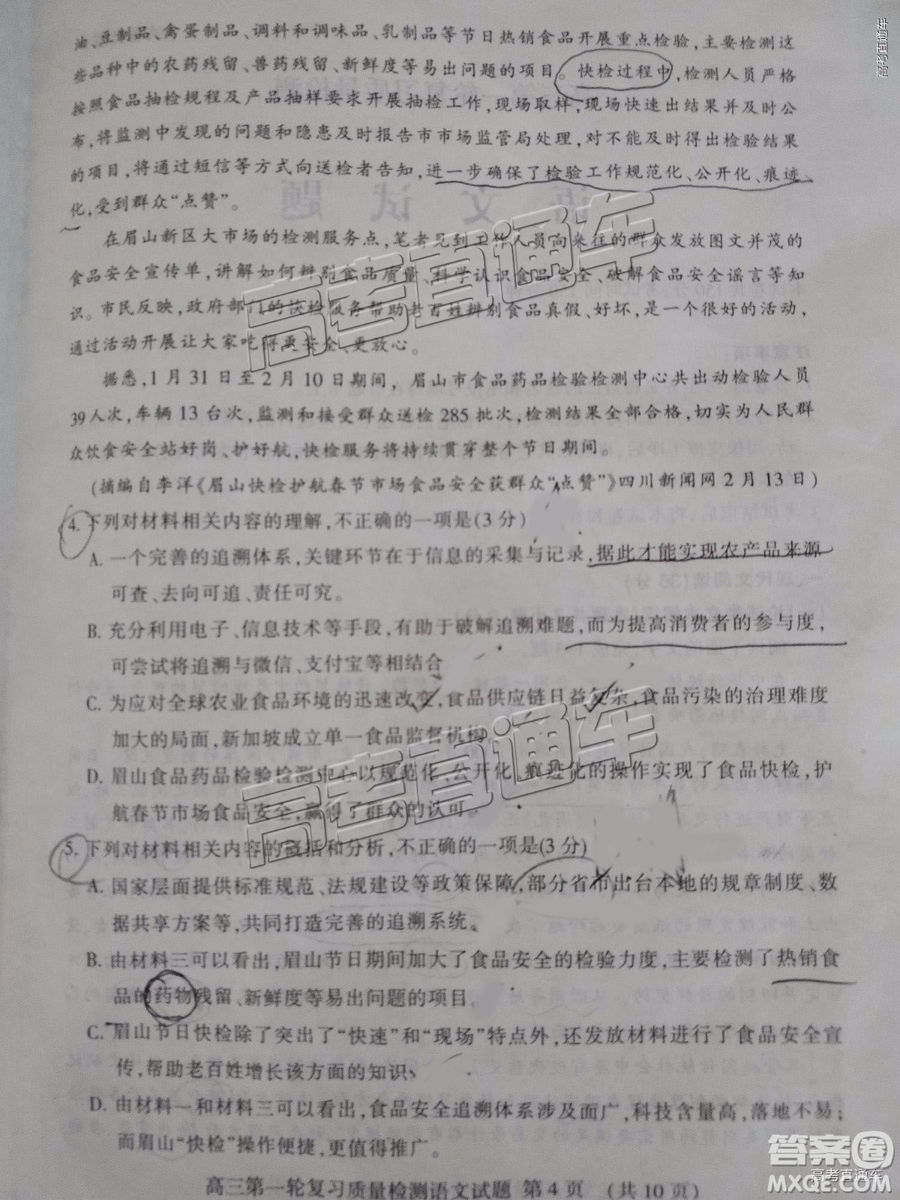 油、豆制品、禽蛋制品、调料和调味品、乳制品等节日热销食品开展重点检验，主要检测这
些品种中的农药残留、兽药残留、新鲜度等易出问题的项目。快检过程中，检测人员严格
按照食品抽检规程及产品抽样要求开展抽检工作，现场取样，现场快速出结果并及时公
布，将监测中发现的问题和隐患及时报告市市场监管局处理，对不能及时得出检验结果
的项目，将通过短信等方式向送检者告知，进一步确保了检验工作规范化、公开化、痕迹
化，受到群众“点赞”。
在眉山新区大市场的检测服务点，笔者见到工作人员向来往的群众发放图文并茂的
食品安全宣传单，讲解如何辨别食品质量、科学认识食品安全、破解食品安全谣言等知
识。市民反映，政府部门的快检服务帮助老百姓辨别食品真假、好坏，是一个很好的活动，
通过活动开展让大家吃得更安全、更放心。
据悉，1月31日至2月10日期间，眉山市食品药品检验检测中心共出动检验人员
39人次，车辆13台次，监测和接受群众送检285批次，检测结果全部合格，切实为人民群
众饮食安全站好岗、护好航，快检服务将持续贯穿整个节日期间。
(摘编自李洋《眉山快检护航春节市场食品安全获群众“点赞”》四川新闻网2月13日)
4. 下列对材料相关内容的理解，不正确的一项是(3分)
A. 一个完善的追溯体系，关键环节在于信息的采集与记录，据此才能实现农产品来源
可查、去向可追、责任可究。
B. 充分利用电子、信息技术等手段，有助于破解追溯难题，而为提高消费者的参与度，
可尝试将追溯与微信、支付宝等相结合
C. 为应对全球农业食品环境的迅速改变，食品供应链日益复杂，食品污染的治理难度
加大的局面，新加坡成立单一食品监督机构
D. 眉山食品药品检验检测中心以规范化、公开化、痕迹化的操作实现了食品快检，护
航春节市场食品安全，赢得了群众的认可。
5. 下列对材料相关内容的概括和分析，不正确的一项是(3分)
A. 国家层面提供标准规范、法规建设等政策保障，部分省市出台本地的规章制度、数
据共享方案等，共同打造完善的追溯系统。
B. 由材料三可以看出，眉山节日期间加大了食品安全的检验力度，主要检测了热销食
品的药物残留、新鲜度等易出问题的项目。
C. 眉山节日快检除了突出了“快速”和“现场”特点外，还发放材料进行了食品安全宣
传，帮助老百姓增长该方面的知识、
D. 由材料一和材料三可以看出，食品安全追溯体系涉及面广，科技含量高，落地不易；
而眉山“快检”操作便捷，更值得推广。
高三第一轮复习质量检测语文试题 第4页 (共10页)
高考直通车
高考直通车
高考直通车
答案圈
高考直通车
MXQE.COM